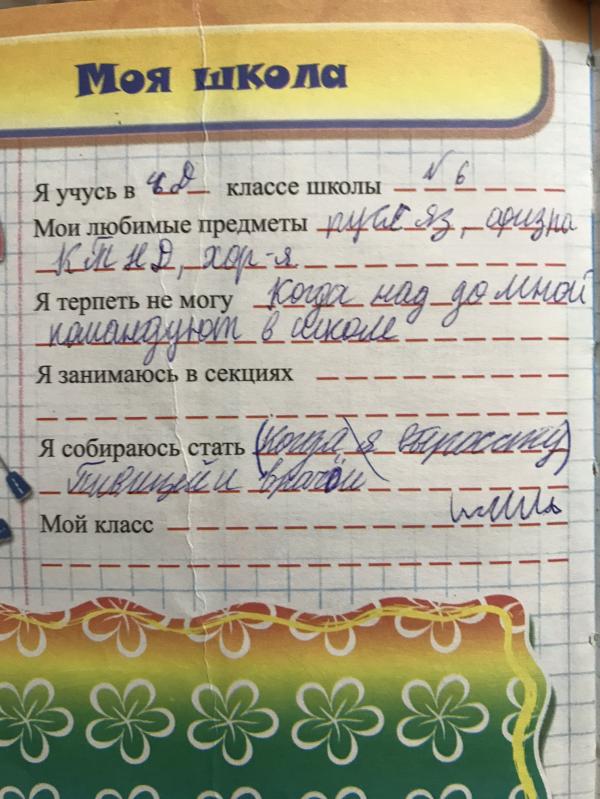 Моя школа
Я учусь в 4 Д классе школы N 6
Мои любимые предметы русс яз, физра
КТНД, хор-я
Я терпеть не могу когда над до мной
командуют в школе
Я занимаюсь в секциях
Я собираюсь стать (когда я вырасту)
певицей и врачом
Мой класс